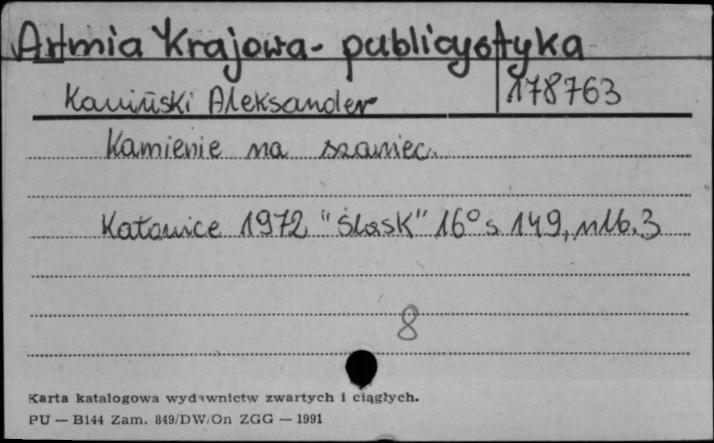 Armia Krajowa - publicystyka
Kamiński Aleksander 178763
Kamienie na szaniec.
Katowice 1972 "Śląsk" 16° s 149, nlb. 3
8
Karta katalogowa wydawnictw zwartych i ciągłych.
PU — B144 Zam. 849/DW/On ZGG — 1991